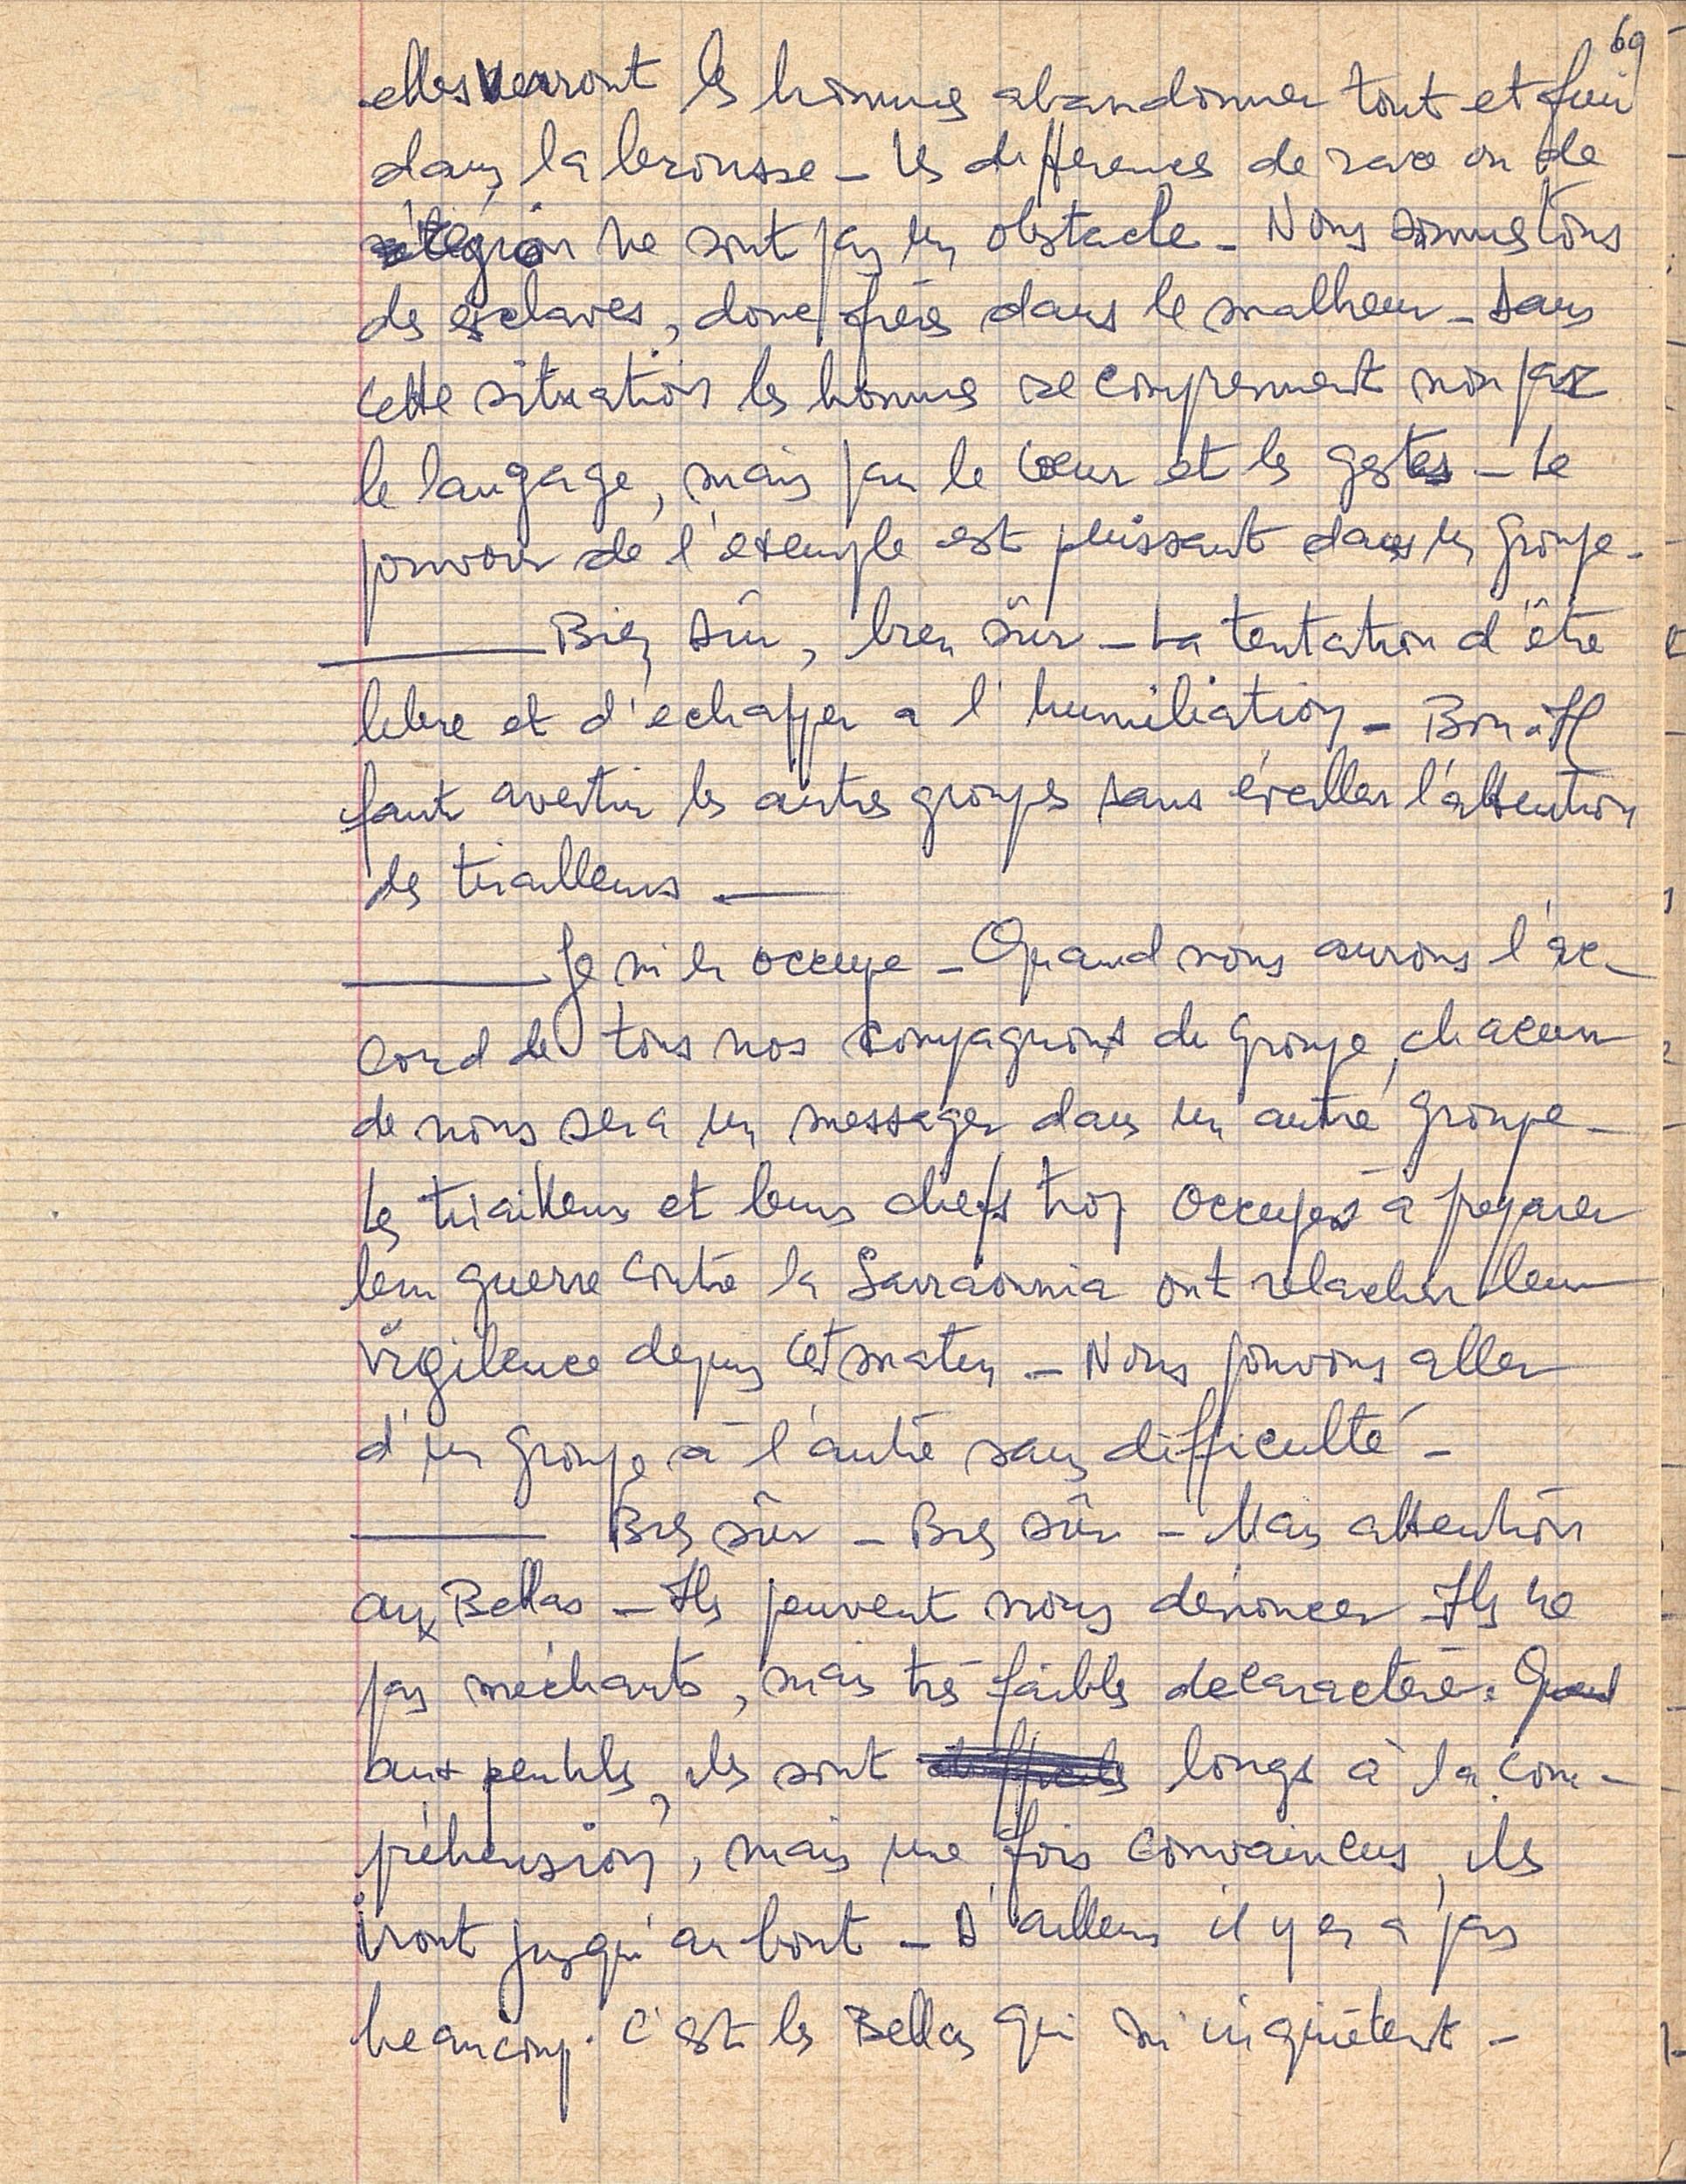 69
elles verront les hommes abandonner tout et fuir
dans la brousse - Les differences de race ou de
réligion ne sont pas un obstacle - Nous sommes tous
des esclaves, donc frères dans le malheur - Dans
cette situation les hommes se comprennent non par
le langage, mais par le coeur et les gestes - Le
pouvoir de l'exemple est puissant dans un groupe -
— Bien sûr, bien sûr - La tentation d'être
libre et d'echapper a l'humiliation - Bon. Il
faut avertir les autres groupes sans éveiller l'attention
des tirailleurs . —
— Je m'en occupe - Quand nous aurons l'ac-
cord de tous nos compagnons de groupe, chacun
de nous sera un messager dans un autre groupe -
Les tirailleurs et leurs chefs trop occupés à preparer
leur guerre contre la Sarraounia ont relacher leur
vigilence depuis cet matin - Nous pouvons aller
d'un groupe à l'autre sans difficulté -
— Bien sûr - Bien sûr - Mais attention
aux Bellas - Ils peuvent nous dénoncer - Ils ne
pas méchants, mais très faibles de caractère. Quand
aux peuhls, ils sont longs à la com-
préhension, mais une fois convaincus, ils
iront jusqu'au bout - D'ailleurs il y en a pas
beaucoup. C'est les Bellas qui m'inquiètent -